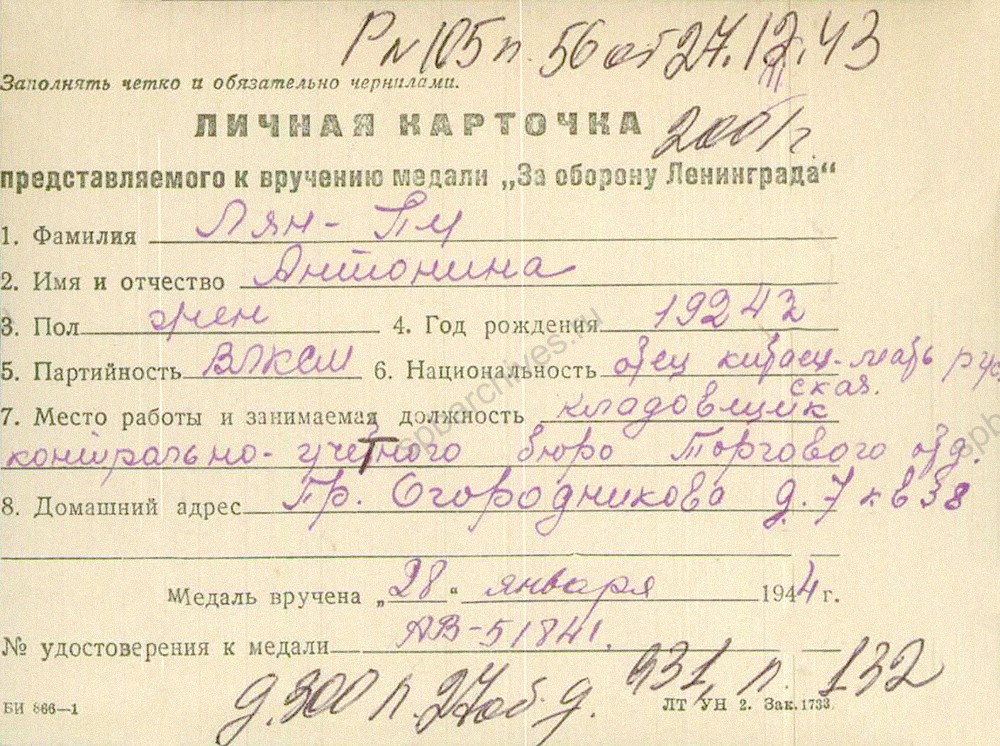 Р № 105 п. 56 от 27.12.43
III
Заполнять четко и обязательно чернилами.
ЛИЧНАЯ КАРТОЧКА
представляемого к вручению медали „За оборону Ленинграда“
1. Фамилия Лян-Пи
2. Имя и отчество Антонина
3. Пол жен 4. Год рождения 1924
5. Партийность ВЛКСМ 6. Национальность отец китаец-мать рус
ская.
7. Место работы и занимаемая должность кладовщик
контрольно-учетного бюро Торгового отд.
8. Домашний адрес Пр. Огородникова д. 7 кв 38
Медаль вручена „28“ января 1944 г.
№ удостоверения к медали АВ-51841.
д. 300 п. 27об д. 931, п. 132
БИ 866—1 ЛТ УН 2. Зак. 1733
spbarchives.ru
spb